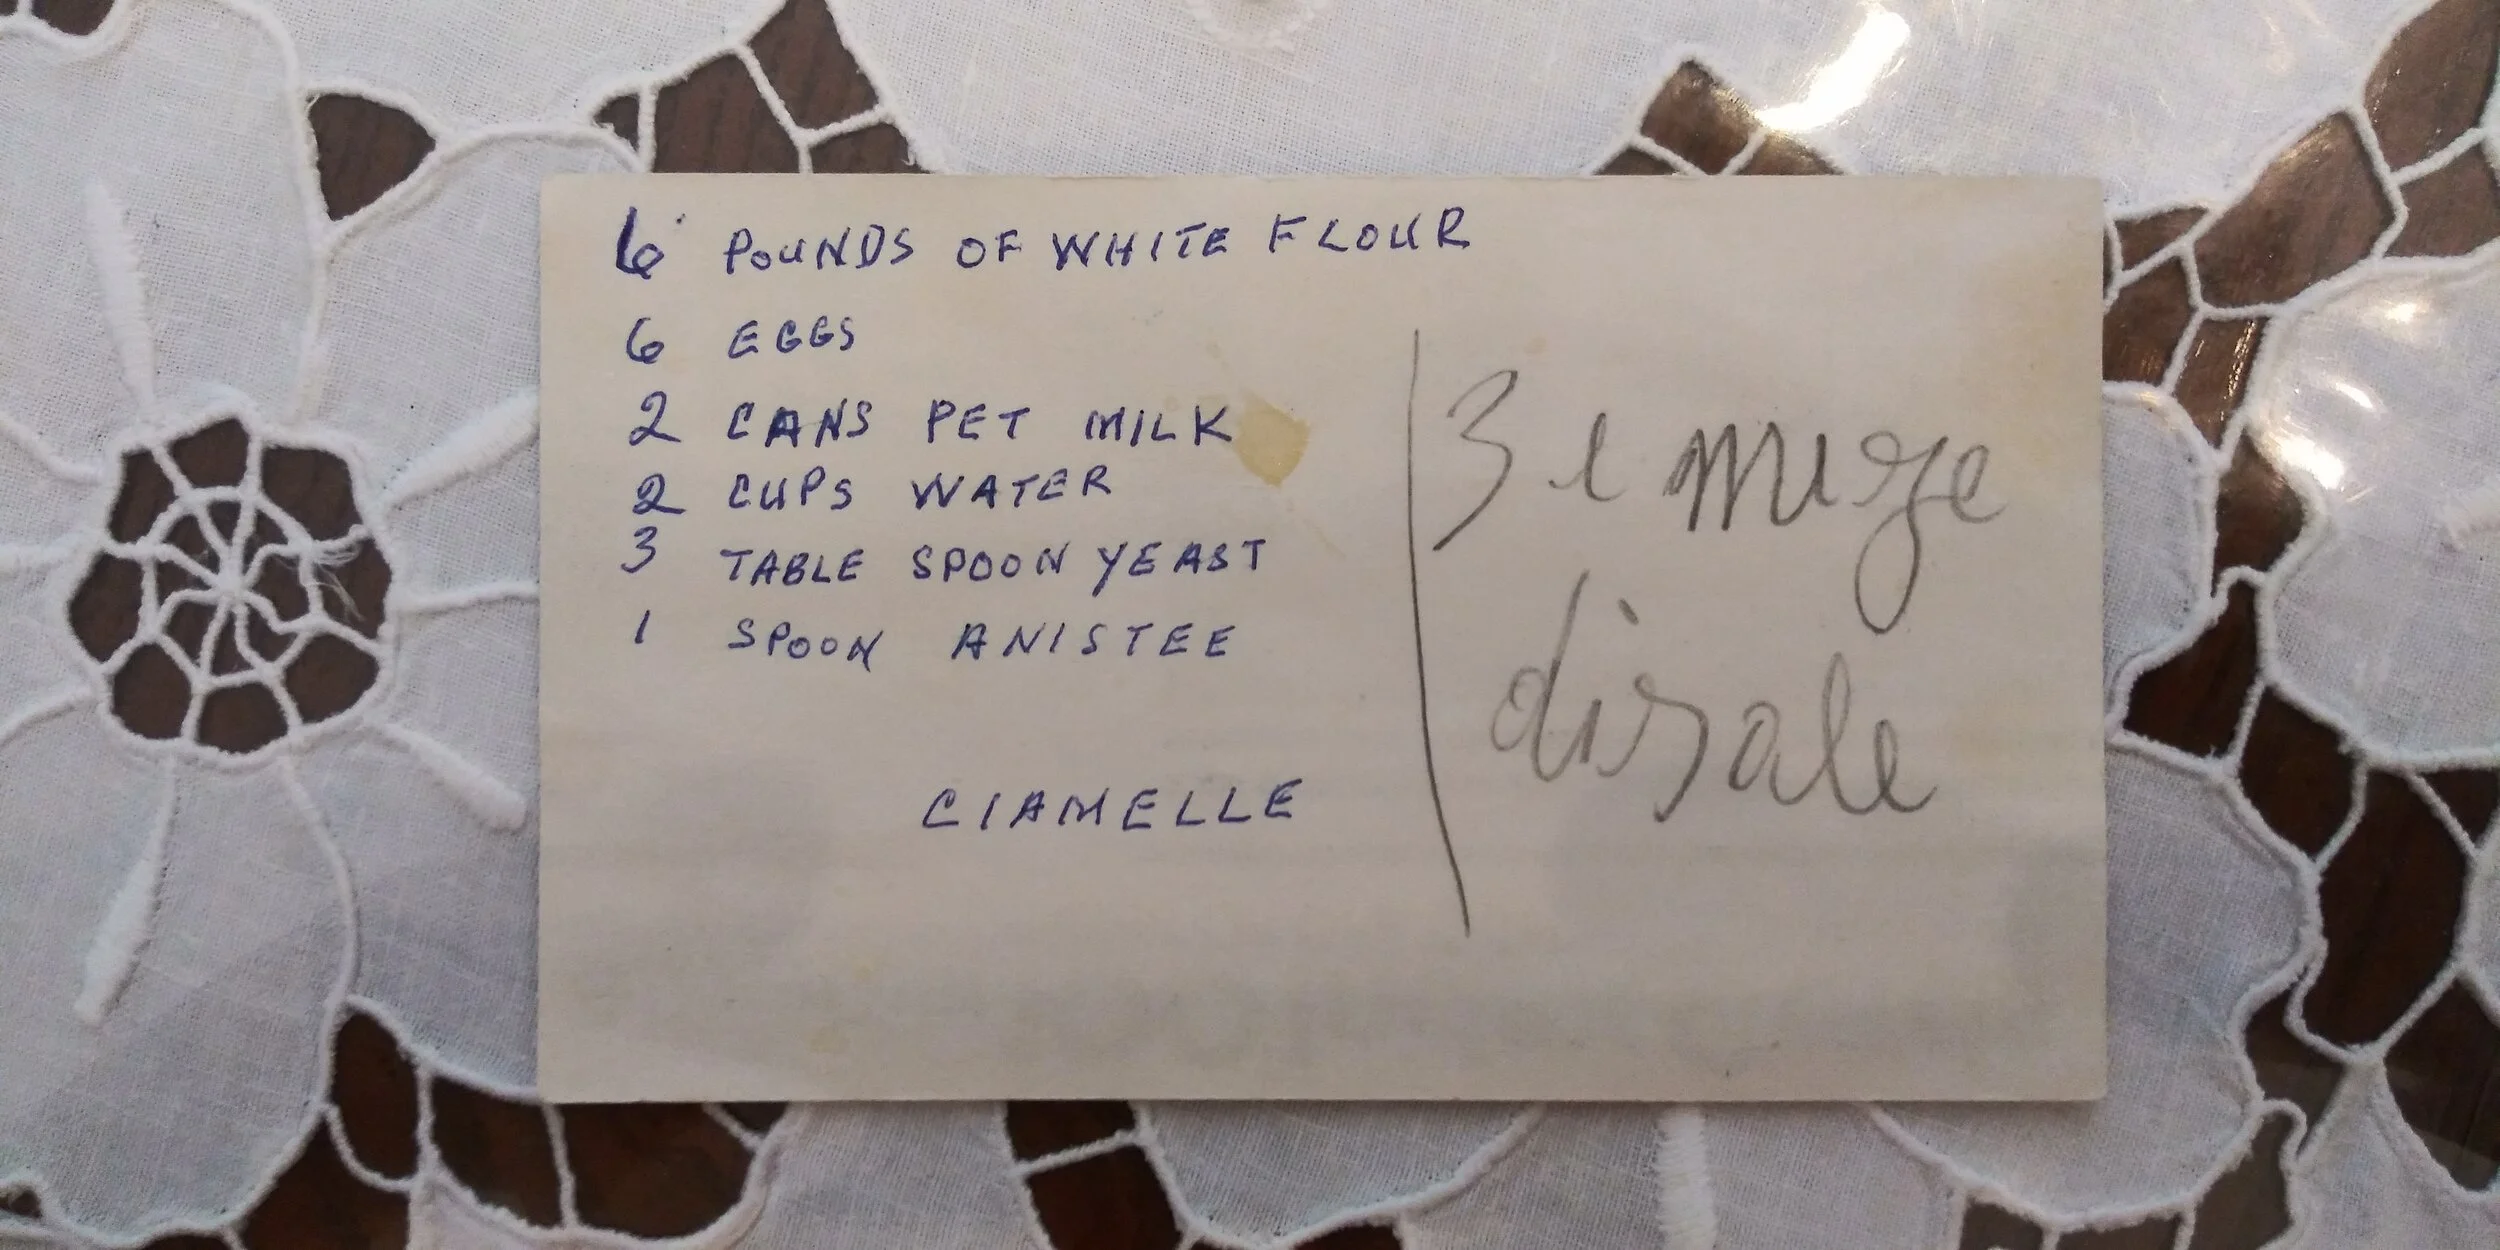 6 POUNDS OF WHITE FLOUR
6 EGGS
2 CANS PET MILK
2 CUPS WATER
3 TABLE SPOON YEAST
1 SPOON ANISTEE
CIAMELLE
3 e muze
disale